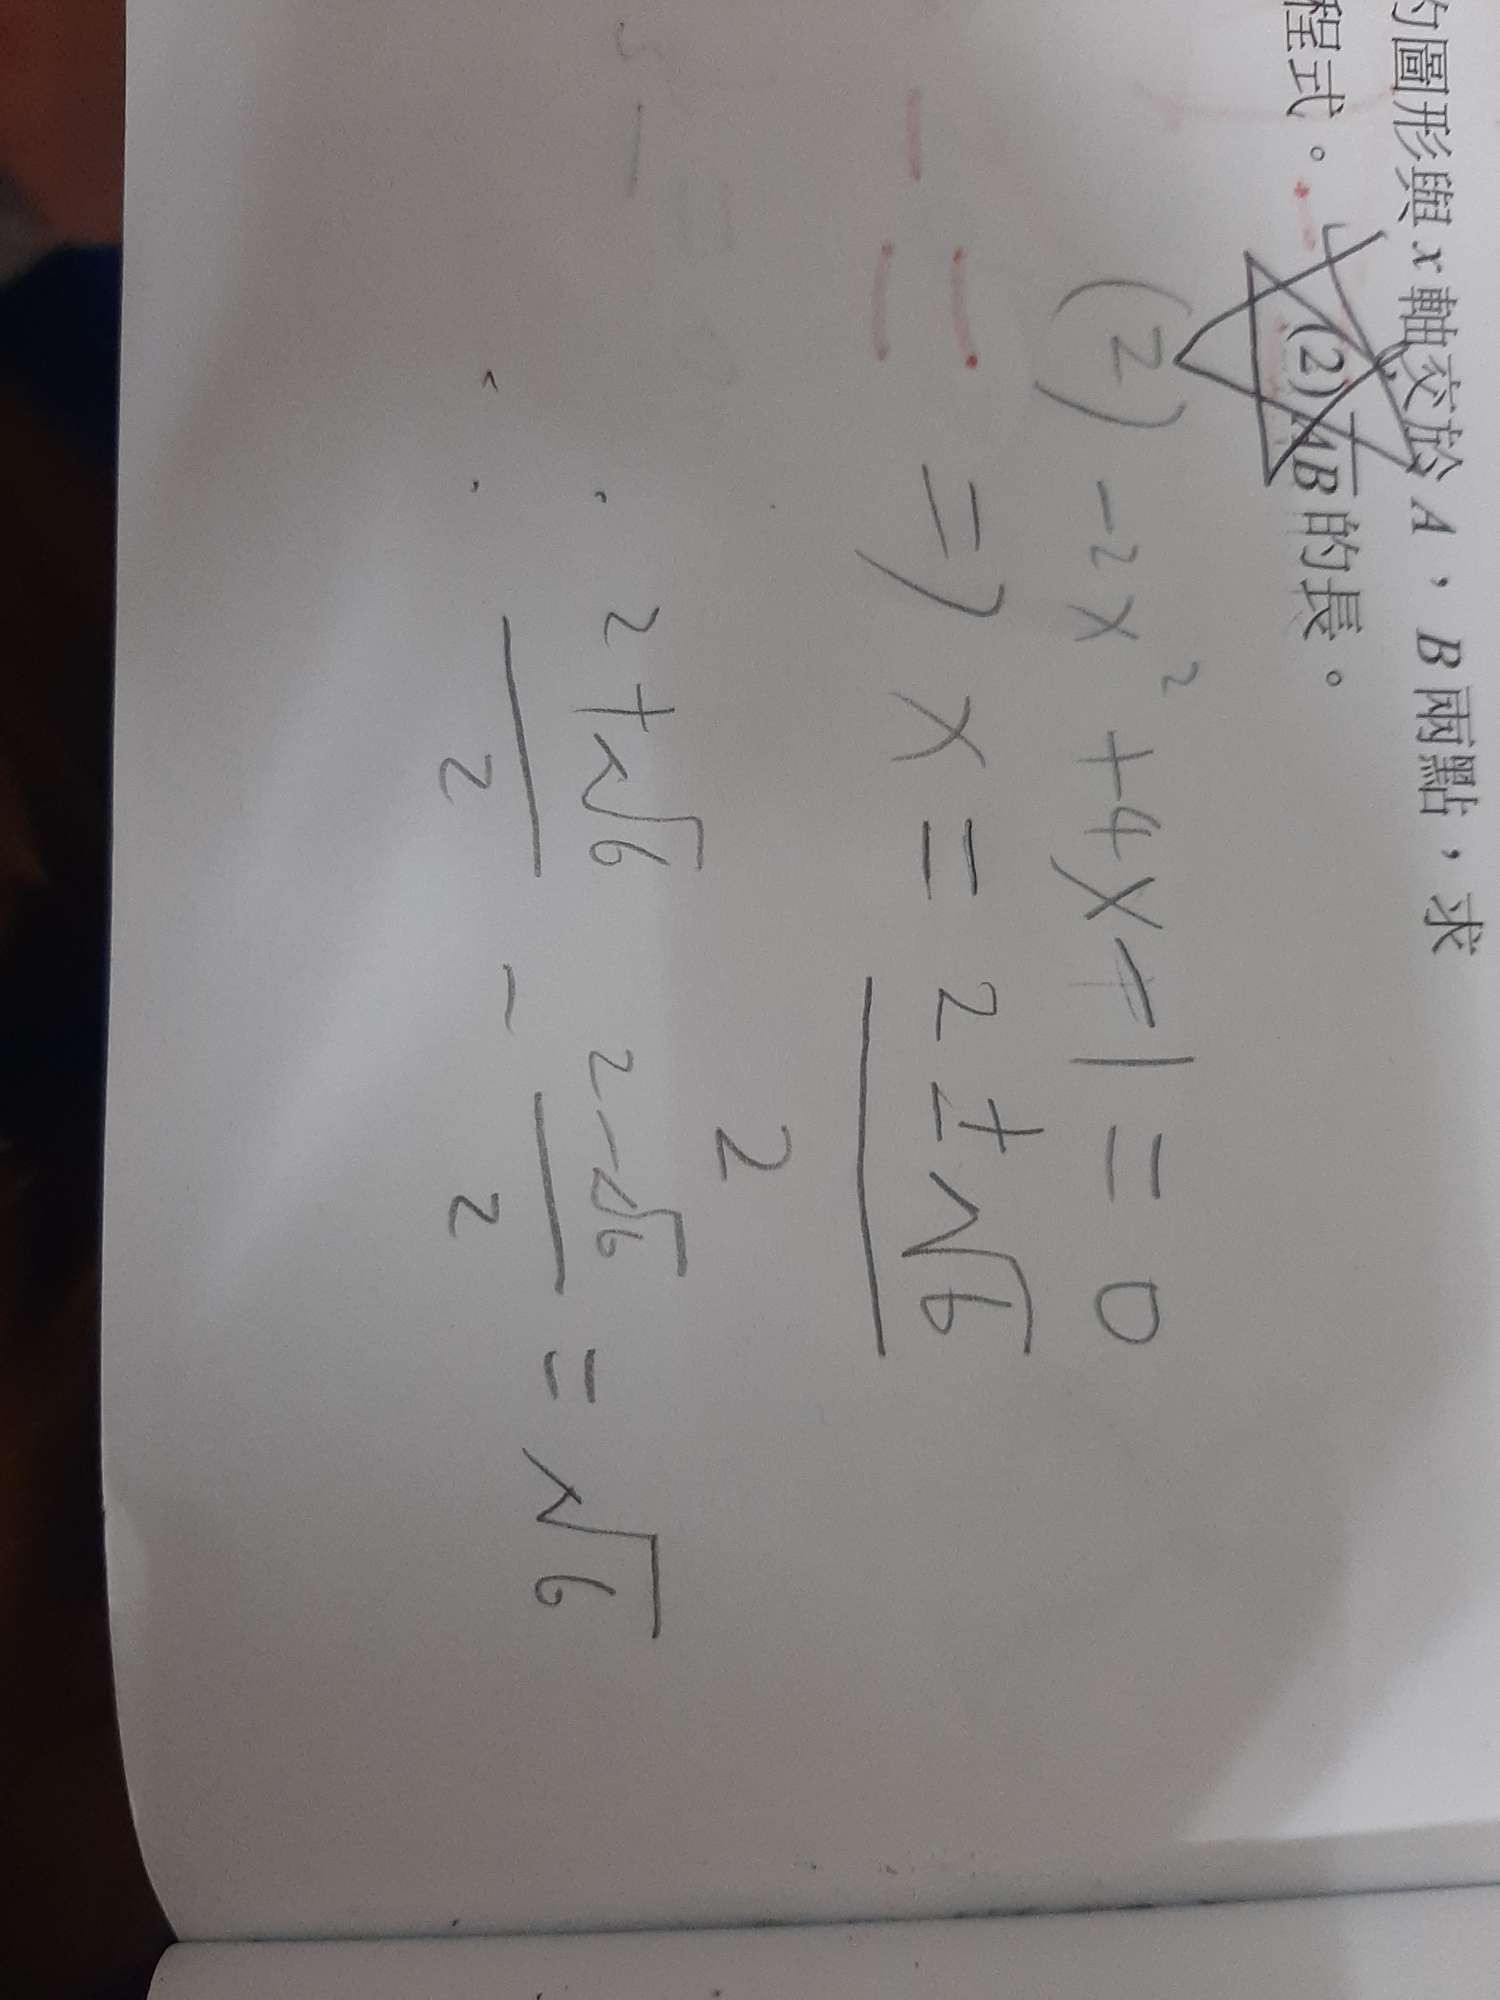 的圖形與 x 軸交於 A,B 兩點,求
程式。 (2) AB 的長。
(2) -2x² + 4x + 1 = 0
=) x = 2 ± √6
2
2 + √6 / 2 - 2 - √6 / 2 = √6